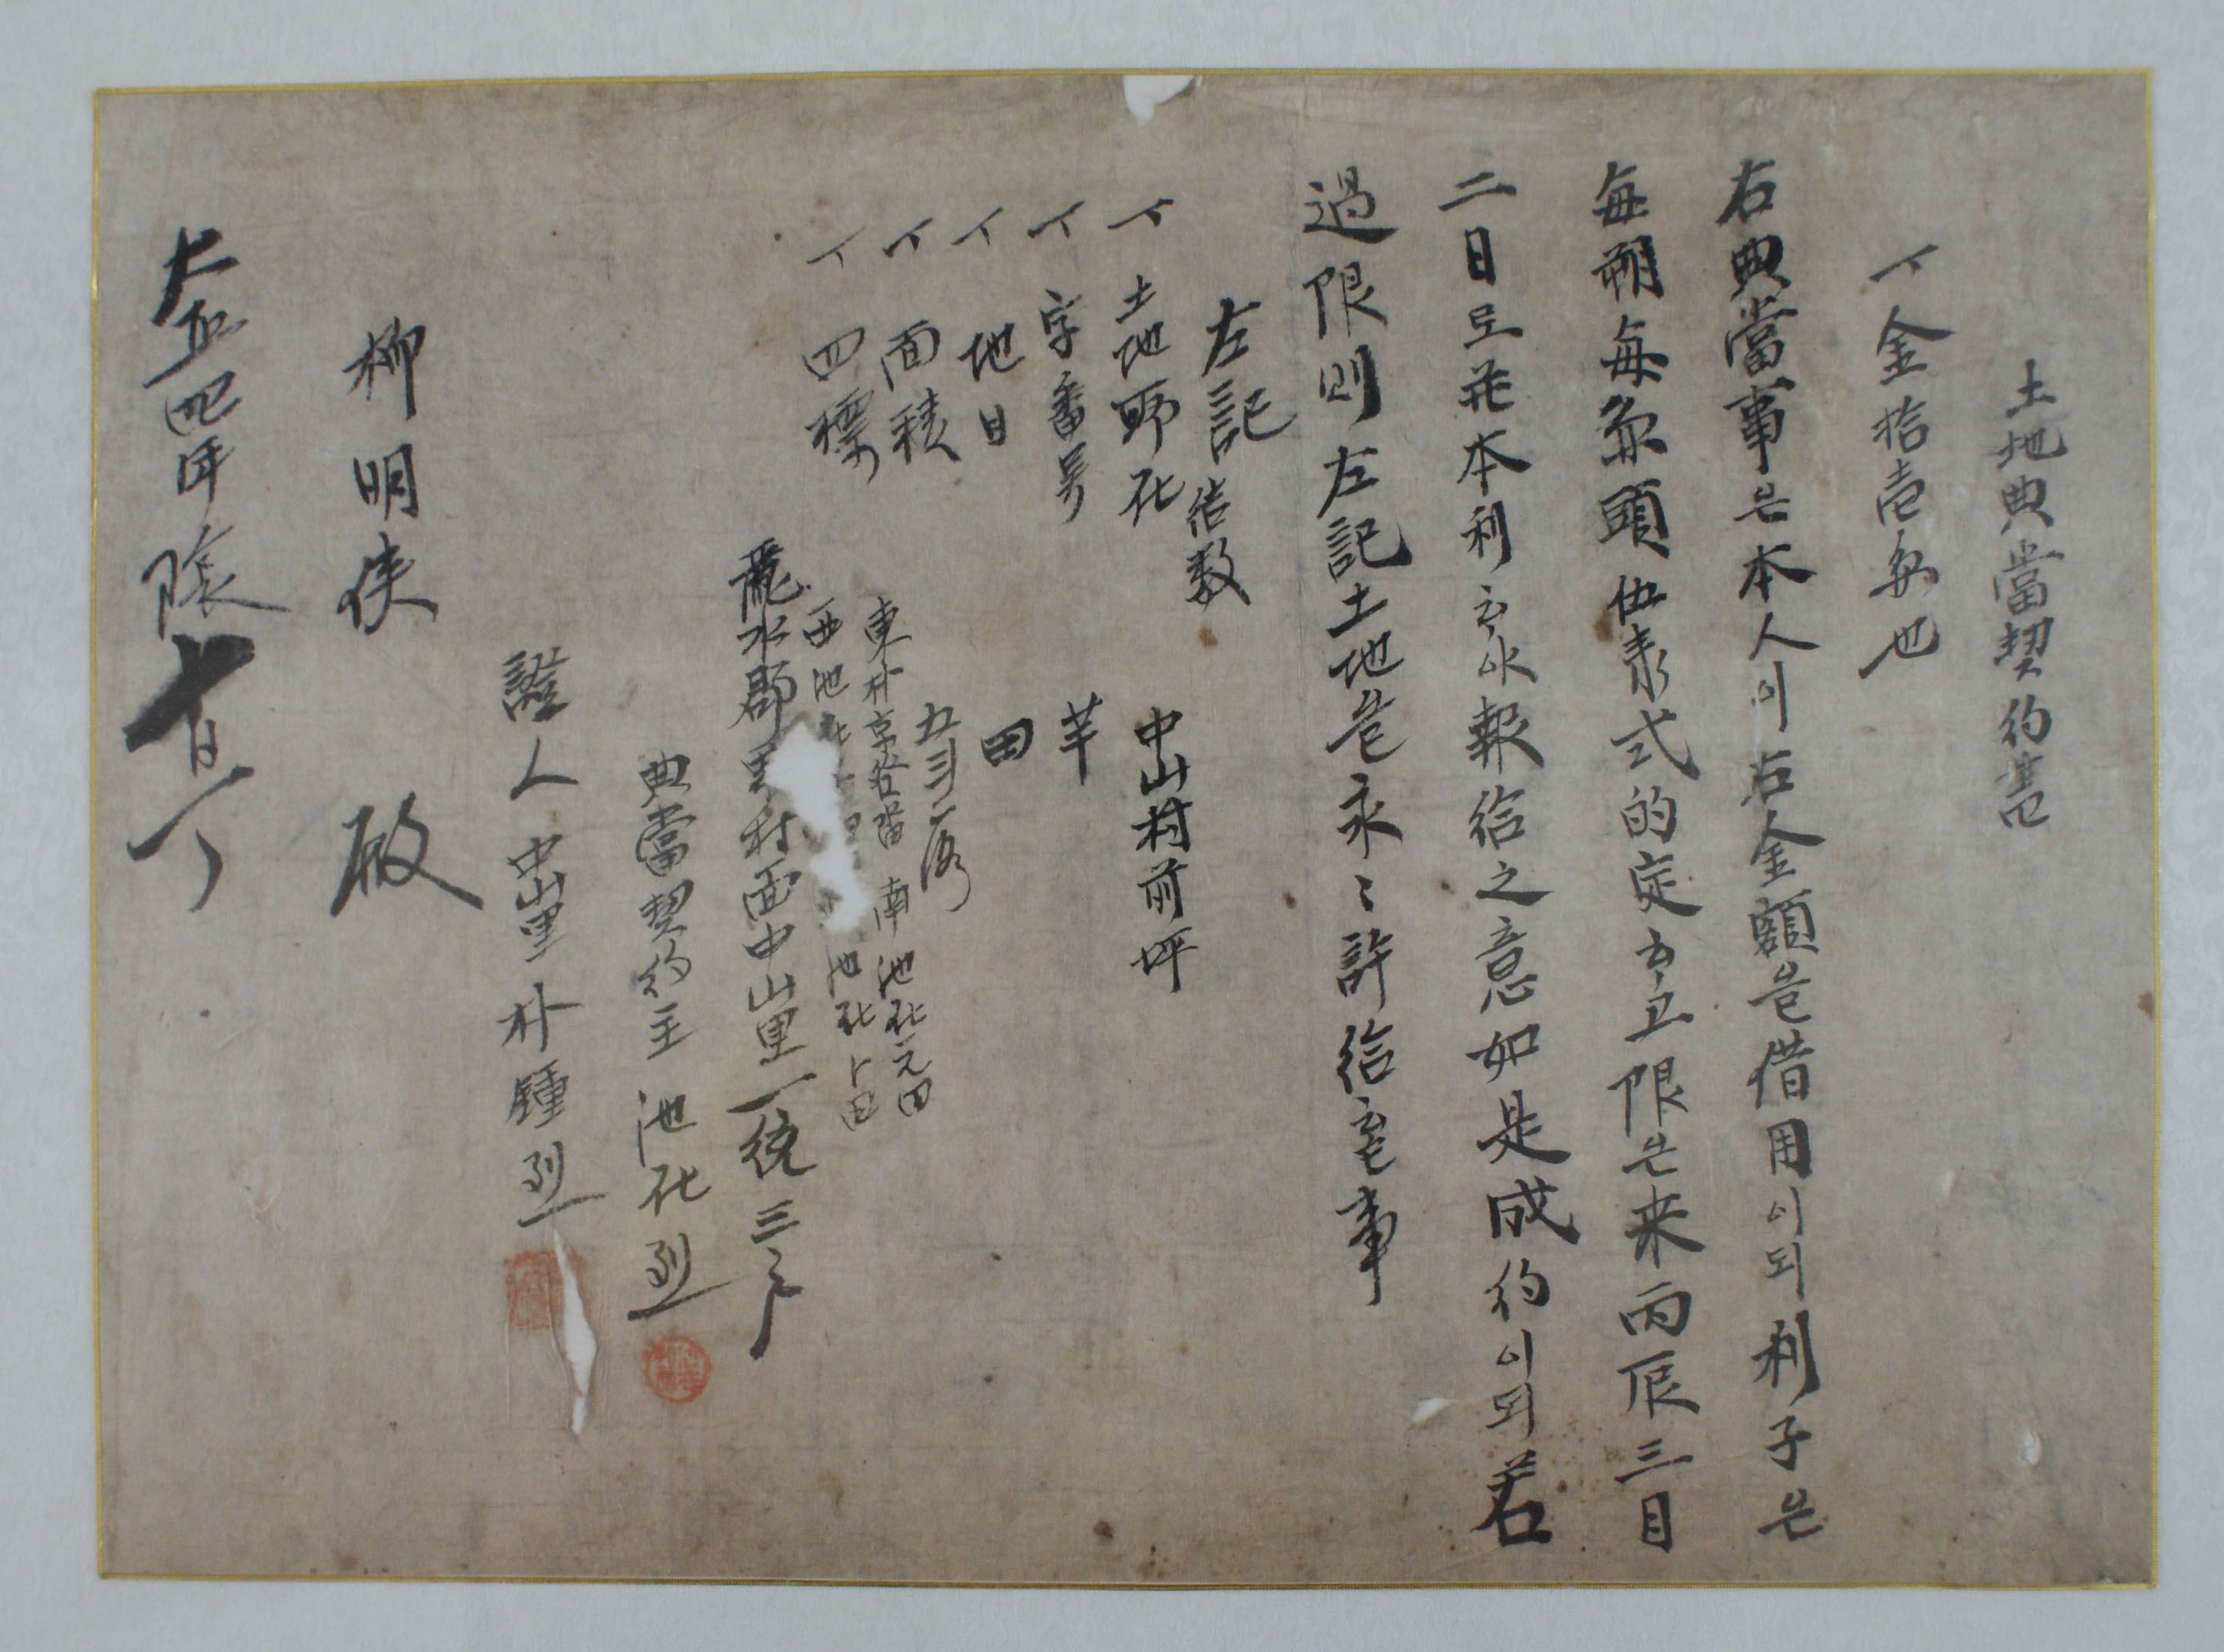 土地典當契約書
一金拾壹兩也
右典當事는本人이右金額을借用이되利子는
每朔每兩頭伍戔式的定하고限은来丙辰三月
二日로並本利하야報給之意如是成約이되若
過限則左記土地을永〻許給할事
左記 結数
一土地所在 中山村前坪
一字番号 芉
一地目 田
一面積 五斗落
一四標 東朴京谷畓 南池化元田
西池化 池化卜田
龍水郡 村面中山里一統三戶
典當契約主 池化烈
證人 中山里 朴鍾烈
柳明俠 殿
大正四年陰十 日